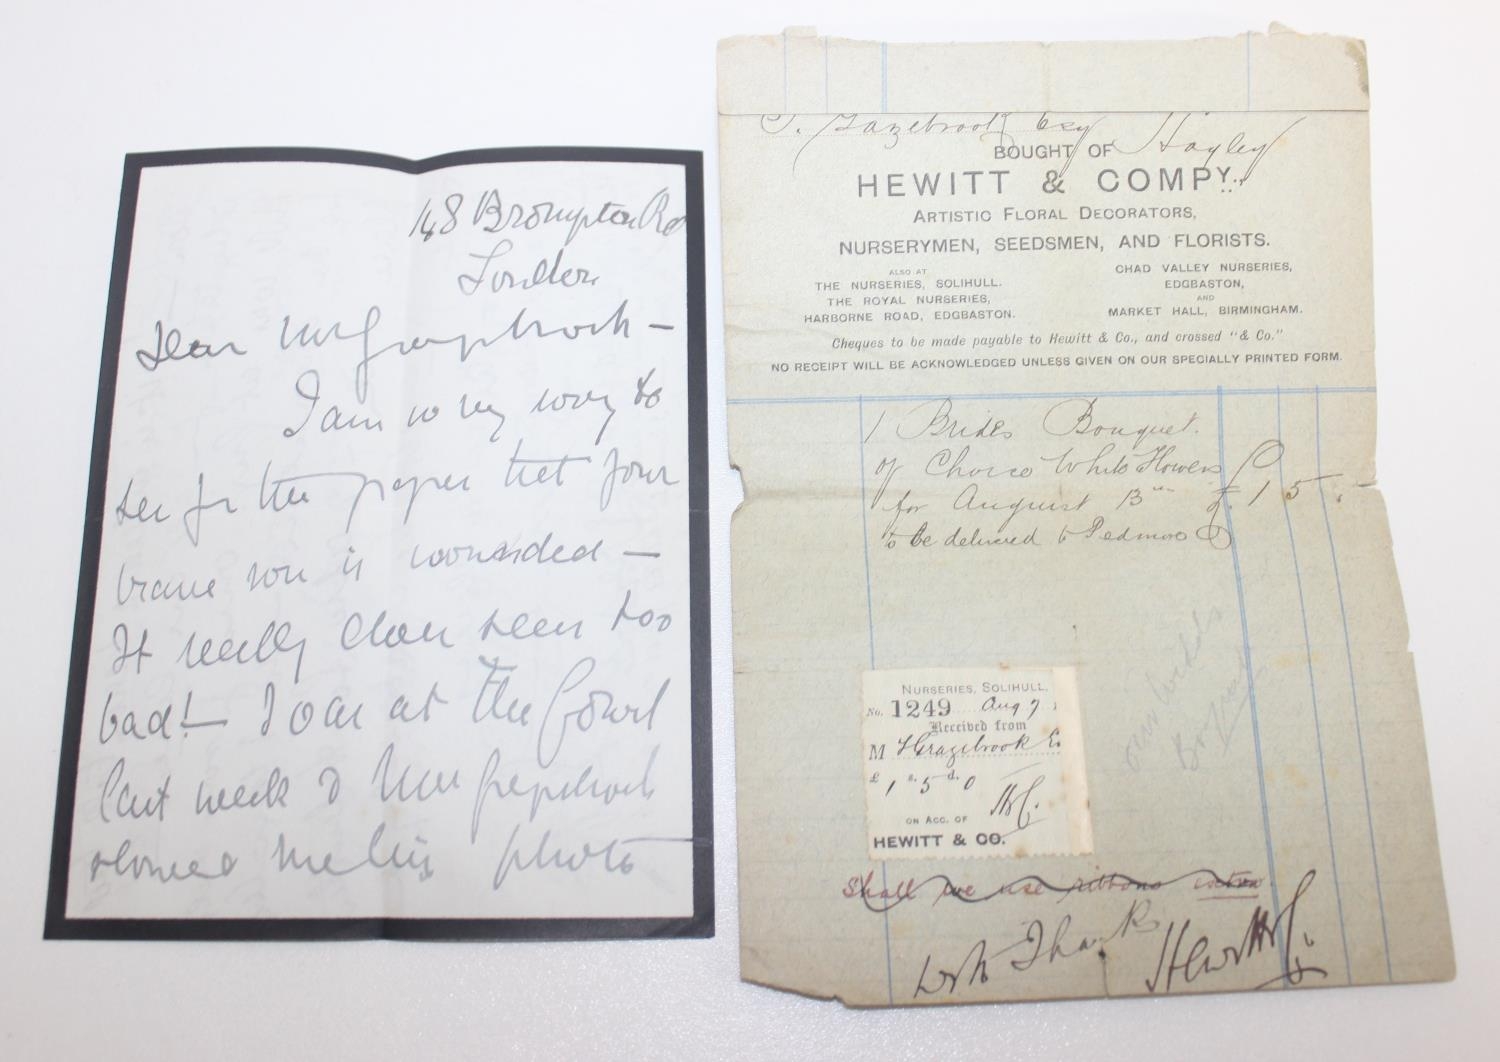 148 Brompton Rd
London
Dear Mr Grazebrook –
I am so very sorry to
see fr the paper that your
brave son is wounded –
It really does seem too
bad! – I was at the
last week & Mrs Grazebrook
showed me his photo
T. Grazebrook Esq Hagley
BOUGHT OF
HEWITT & COMPY.,
ARTISTIC FLORAL DECORATORS,
NURSERYMEN, SEEDSMEN, AND FLORISTS.
ALSO AT
THE NURSERIES, SOLIHULL.
THE ROYAL NURSERIES,
HARBORNE ROAD, EDGBASTON.
CHAD VALLEY NURSERIES,
EDGBASTON,
AND
MARKET HALL, BIRMINGHAM.
Cheques to be made payable to Hewitt & Co., and crossed "& Co."
NO RECEIPT WILL BE ACKNOWLEDGED UNLESS GIVEN ON OUR SPECIALLY PRINTED FORM.
1 Brides Bouquet.
of Choice White Flowers
for August 13th £ 1 5 .
to be delivered to Pedmore
Bouquet
NURSERIES, SOLIHULL,
No. 1249 Aug 7
Received from
M T Grazebrook E.
£ 1 s. 5 d. 0
ON ACC. OF
HEWITT & CO.
Shall we use ribbons extra
With Thanks
Hewitt & Co.